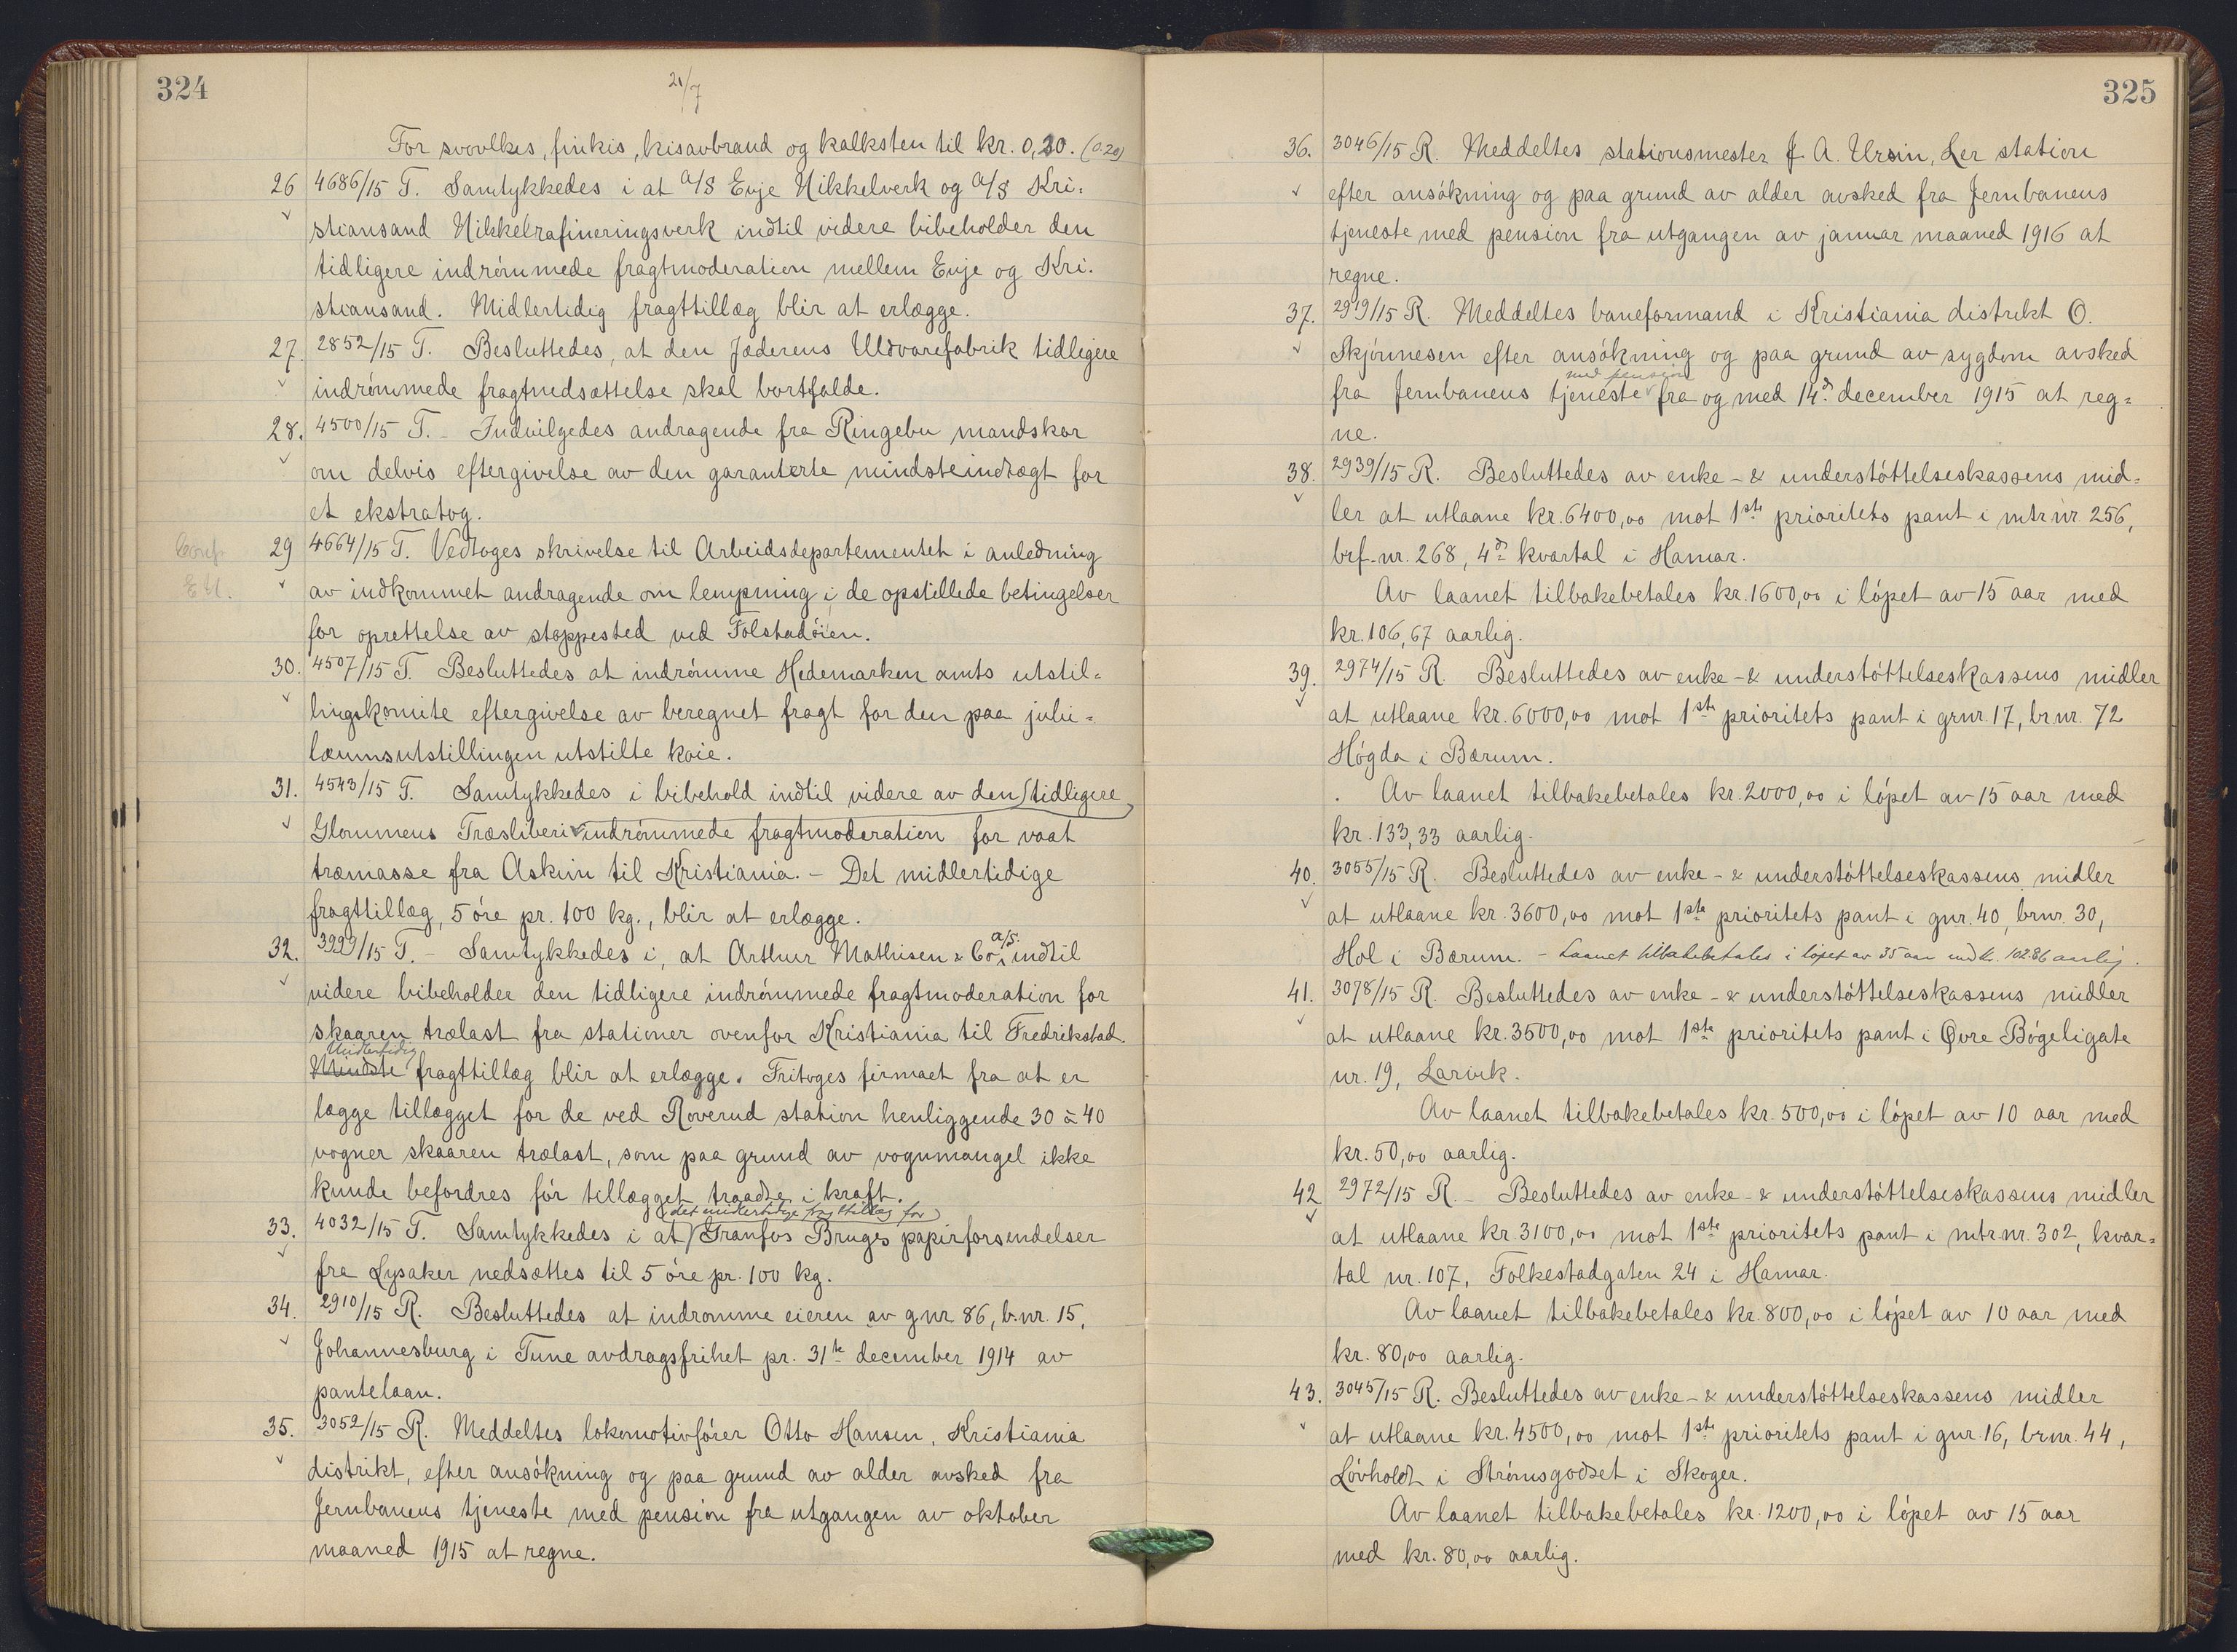 324
21/7
For svovlkis, finkis, kisavbrand og kalksten til kr. 0,20. (0.20)
26 4686/15 T. Samtykkedes i at A/S Evje Nikkelverk og A/S Kri-
stiansand Nikkelrafineringsverk indtil videre bibeholder den
tidligere indrømmede fragtmoderation mellem Evje og Kri-
stiansand. Midlertidig fragttillæg blir at erlægge.
27. 2852/15 T. Besluttedes, at den Jæderens Uldvarefabrik tidligere
indrømmede fragtnedsættelse skal bortfalde.
28. 4500/15 T. - Indvilgedes andragende fra Ringebu mandskor
om delvis eftergivelse av den garanterte mindsteindtægt for
et ekstratog.
29 4664/15 T. Vedtoges skrivelse til Arbeidsdepartementet i anledning
av indkommet andragende om lempning i de opstillede betingelser
for oprettelse av stoppested ved Folstadøien.
30. 4507/15 T. Besluttedes at indrømme Hedemarken amts utstil-
lingskomite eftergivelse av beregnet fragt for den paa jubi-
læumsutstillingen utstilte koie.
31. 4543/15 T. Samtykkedes i bibehold indtil videre av den tidligere
Glommens Træsliberi indrømmede fragtmoderation for vaat
træmasse fra Askim til Kristiania. - Det midlertidige
fragttillæg, 5 øre pr. 100 kg., blir at erlægge.
32. 3999/15 T. - Samtykkedes i, at Arthur Mathisen & Co. A/S. indtil
videre bibeholder den tidligere indrømmede fragtmoderation for
skaaren trælast fra stationer ovenfor Kristiania til Fredrikstad.
Midlertidig
Mindste fragttillæg blir at erlægge. Fritoges firmaet fra at er
lægge tillægget for de ved Roverud station henliggende 30 à 40
vogner skaaren trælast, som paa grund av vognmangel ikke
kunde befordres før tillægget traadte i kraft.
(det midlertidige fragttillæg for)
33. 4032/15 T. Samtykkedes i at Granfos Bruges papirforsendelser
fra Lysaker nedsættes til 5 øre pr. 100 kg.
34. 2910/15 R. Besluttedes at indrømme eieren av gnr 86, b.nr. 15,
Johannesburg i Tune avdragsfrihet pr. 31te december 1914 av
pantelaan.
35. 3052/15 R. Meddeltes lokomotivfører Otto Hansen, Kristiania
distrikt, efter ansøkning og paa grund av alder avsked fra
Jernbanens tjeneste med pension fra utgangen av oktober
maaned 1915 at regne.
325
36. 3046/15 R. Meddeltes stationsmester J. A. Ursin, Ler station
efter ansøkning og paa grund av alder avsked fra Jernbanens
tjeneste med pension fra utgangen av januar maaned 1916 at
regne.
37. 2919/15 R. Meddeltes baneformand i Kristiania distrikt O.
Skjønnesen efter ansøkning og paa grund av sygdom avsked
med pension
fra Jernbanens tjeneste fra og med 14d. december 1915 at reg-
ne.
38. 2939/15 R. Besluttedes av enke- & understøttelseskassens mid-
ler at utlaane kr. 6400,00 mot 1ste prioritets pant i mtr.nr. 256,
brf.nr. 268, 4d kvartal i Hamar.
Av laanet tilbakebetales kr. 1600,00 i løpet av 15 aar med
kr. 106,67 aarlig.
39. 2974/15 R. Besluttedes av enke- & understøttelseskassens midler
at utlaane kr. 6000,00 mot 1ste prioritets pant i grnr. 17, brnr. 72
Høgda i Bærum.
Av laanet tilbakebetales kr. 2000,00 i løpet av 15 aar med
kr. 133,33 aarlig.
40. 3055/15 R. Besluttedes av enke- & understøttelseskassens midler
at utlaane kr. 3600,00 mot 1ste prioritets pant i gnr. 40, brnr. 30,
Hol i Bærum. - Laanet tilbakebetales i løpet av 35 aar med kr. 102.86 aarlig.
41. 3078/15 R. Besluttedes av enke- & understøttelseskassens midler
at utlaane kr. 3500,00 mot 1ste prioritets pant i Øvre Bøgeligate
nr. 19, Larvik.
Av laanet tilbakebetales kr. 500,00 i løpet av 10 aar med
kr. 50,00 aarlig.
42 2972/15 R. - Besluttedes av enke- & understøttelseskassens midler
at utlaane kr. 3100,00 mot 1ste prioritets pant i mtr.nr. 302, kvar-
tal nr. 107, Folkestadgaten 24 i Hamar.
Av laanet tilbakebetales kr. 800,00 i løpet av 10 aar med
kr. 80,00 aarlig.
43. 3045/15 R. Besluttedes av enke- & understøttelseskassens midler
at utlaane kr. 4500,00 mot 1ste prioritets pant i gnr. 16, brnr. 44,
Løvholdt i Strømsgodset i Skoger.
Av laanet tilbakebetales kr. 1200,00 i løpet av 15 aar
med kr. 80,00 aarlig.